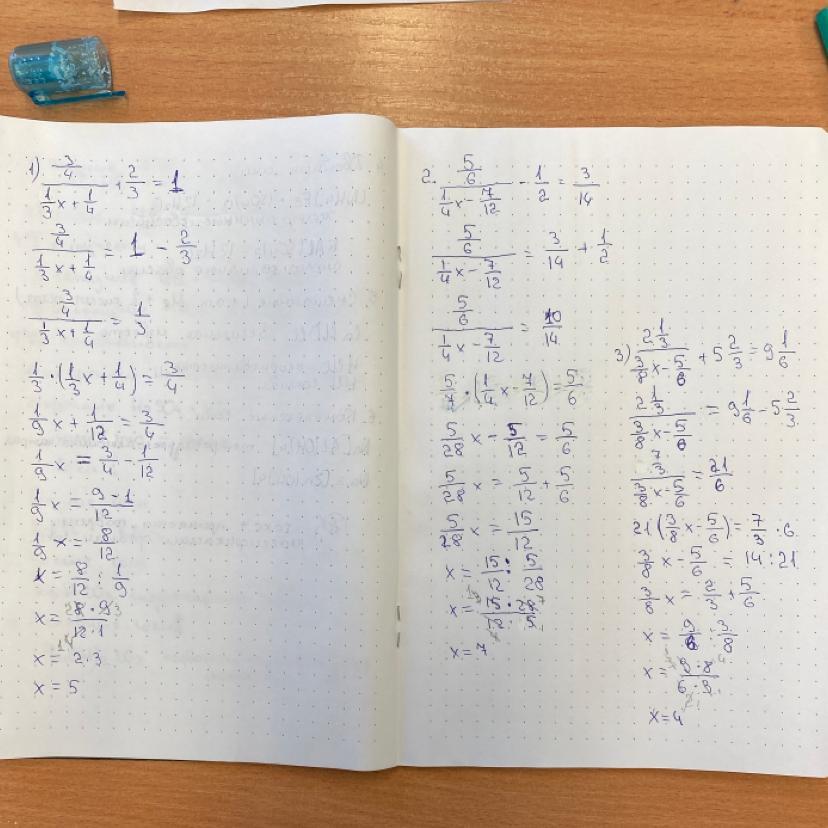 1) (3/4)/(1/3 x + 1/4) + 2/3 = 1
(3/4)/(1/3 x + 1/4) = 1 - 2/3
(3/4)/(1/3 x + 1/4) = 1/3
1/3 · (1/3 x + 1/4) = 3/4
1/9 x + 1/12 = 3/4
1/9 x = 3/4 - 1/12
1/9 x = (9 - 1)/12
1/9 x = 8/12
x = 8/12 : 1/9
x = (8 · 9)/(12 · 1)
x = 2 · 3
x = 5
2. (5/6)/(1/4 x - 7/12) - 1/2 = 3/14
(5/6)/(1/4 x - 7/12) = 3/14 + 1/2
(5/6)/(1/4 x - 7/12) = 10/14
5/7 · (1/4 x - 7/12) = 5/6
5/28 x - 5/12 = 5/6
5/28 x = 5/12 + 5/6
5/28 x = 15/12
x = 15/12 : 5/28
x = (15 · 28)/(12 · 5)
x = 7
3) (2 1/3)/(3/8 x - 5/6) + 5 2/3 = 9 1/6
(2 1/3)/(3/8 x - 5/6) = 9 1/6 - 5 2/3
(7/3)/(3/8 x - 5/6) = 21/6
21 (3/8 x - 5/6) = 7/3 · 6
3/8 x - 5/6 = 14 : 21
3/8 x = 2/3 + 5/6
x = 9/6 : 3/8
x = (9 · 8)/(6 · 3)
x = 4